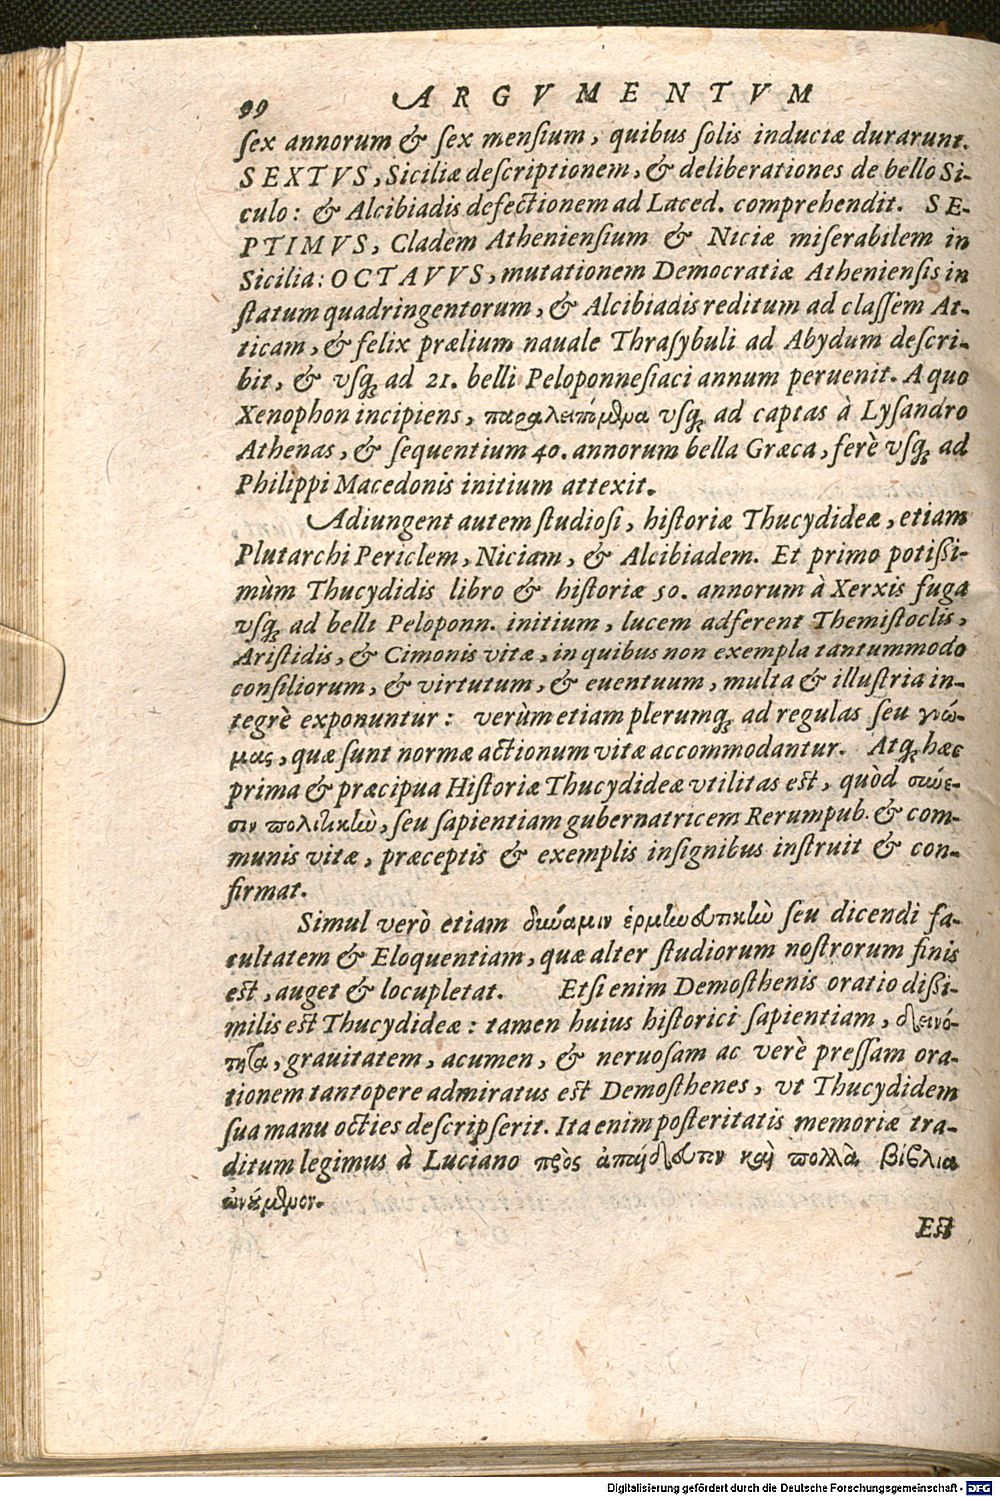 99 ARGVMENTVM
ſex annorum & ſex menſium, quibus ſolis induciæ durarunt.
SEXTVS, Siciliæ deſcriptionem, & deliberationes de bello Si-
culo: & Alcibiadis defectionem ad Laced. comprehendit. SE-
PTIMVS, Cladem Athenienſium & Niciæ miſerabilem in
Sicilia: OCTAVVS, mutationem Democratiæ Athenienſis in
ſtatum quadringentorum, & Alcibiadis reditum ad claſſem At-
ticam, & felix prælium nauale Thraſybuli ad Abydum deſcri-
bit, & vſq; ad 21. belli Peloponneſiaci annum peruenit. A quo
Xenophon incipiens, παραλειπόμθμα vſq; ad captas à Lyſandro
Athenas, & ſequentium 40. annorum bella Græca, ferè vſq; ad
Philippi Macedonis initium attexit.
Adiungent autem ſtudioſi, hiſtoriæ Thucydideæ, etiam
Plutarchi Periclem, Niciam, & Alcibiadem. Et primo potiſsi-
mùm Thucydidis libro & hiſtoriæ 50. annorum à Xerxis fuga
vſq; ad belli Peloponn. initium, lucem adferent Themiſtoclis,
Ariſtidis, & Cimonis vitæ, in quibus non exempla tantummodo
conſiliorum, & virtutum, & euentuum, multa & illuſtria in-
tegrè exponuntur: verùm etiam plerumq; ad regulas ſeu γνώ-
μας, quæ ſunt normæ actionum vitæ accommodantur. Atq; hæc
prima & præcipua Hiſtoriæ Thucydideæ vtilitas eſt, quòd σύνε-
σιν πολιτικὴν, ſeu ſapientiam gubernatricem Rerumpub. & com-
munis vitæ, præceptis & exemplis inſignibus inſtruit & con-
firmat.
Simul verò etiam δύναμιν ἑρμηνευτικὴν ſeu dicendi fa-
cultatem & Eloquentiam, quæ alter ſtudiorum noſtrorum finis
eſt, auget & locupletat. Etſi enim Demoſthenis oratio diſsi-
milis eſt Thucydideæ: tamen huius hiſtorici ſapientiam, δεινό-
τητα, grauitatem, acumen, & neruoſam ac verè preſſam ora-
tionem tantopere admiratus eſt Demoſthenes, vt Thucydidem
ſua manu octies deſcripſerit. Ita enim poſteritatis memoriæ tra-
ditum legimus à Luciano πρὸς ἀπαίδευτον καὶ πολλὰ βιβλία
ὠνούμενον.
Eſt
Digitalisierung gefördert durch die Deutsche Forschungsgemeinschaft - DFG